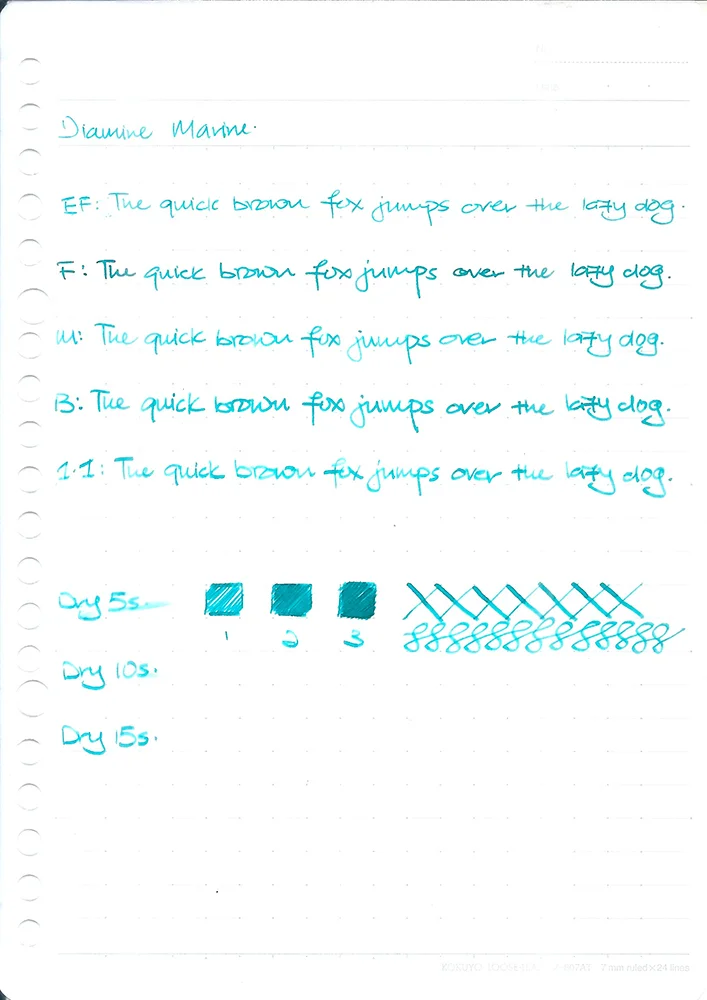 Diamine Marine.
EF: The quick brown fox jumps over the lazy dog.
F: The quick brown fox jumps over the lazy dog.
M: The quick brown fox jumps over the lazy dog.
B: The quick brown fox jumps over the lazy dog.
1.1: The quick brown fox jumps over the lazy dog.
Dry 5s.
1 2 3
888888888888888
Dry 10s.
Dry 15s.
KOKUYO LOOSE-LEAF 7 mm ruled×24 lines